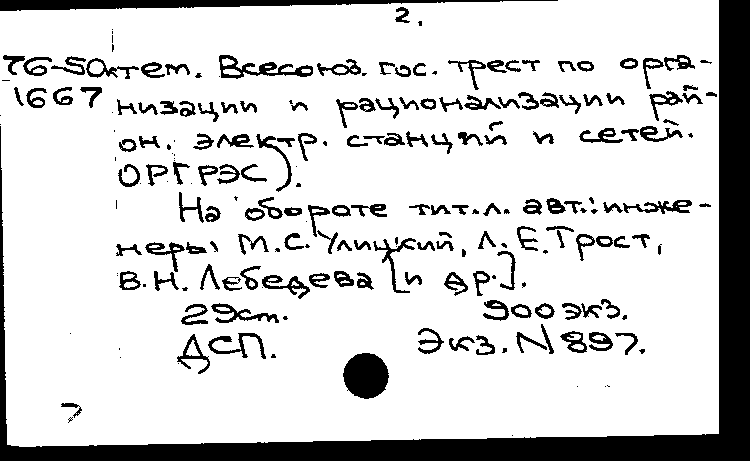 2.
76-50ктем. Всесоюз. гос. трест по орга-
1667 низации и рационализации рай-
он. электр. станций и сетей.
ОРГРЭС).
На обороте тит.л. авт.: инже-
неры М.С. Улицкий, Л.Е. Трост,
В.Н. Лебедева [и др.].
29см. 900экз.
ДСП. Экз. N 897.